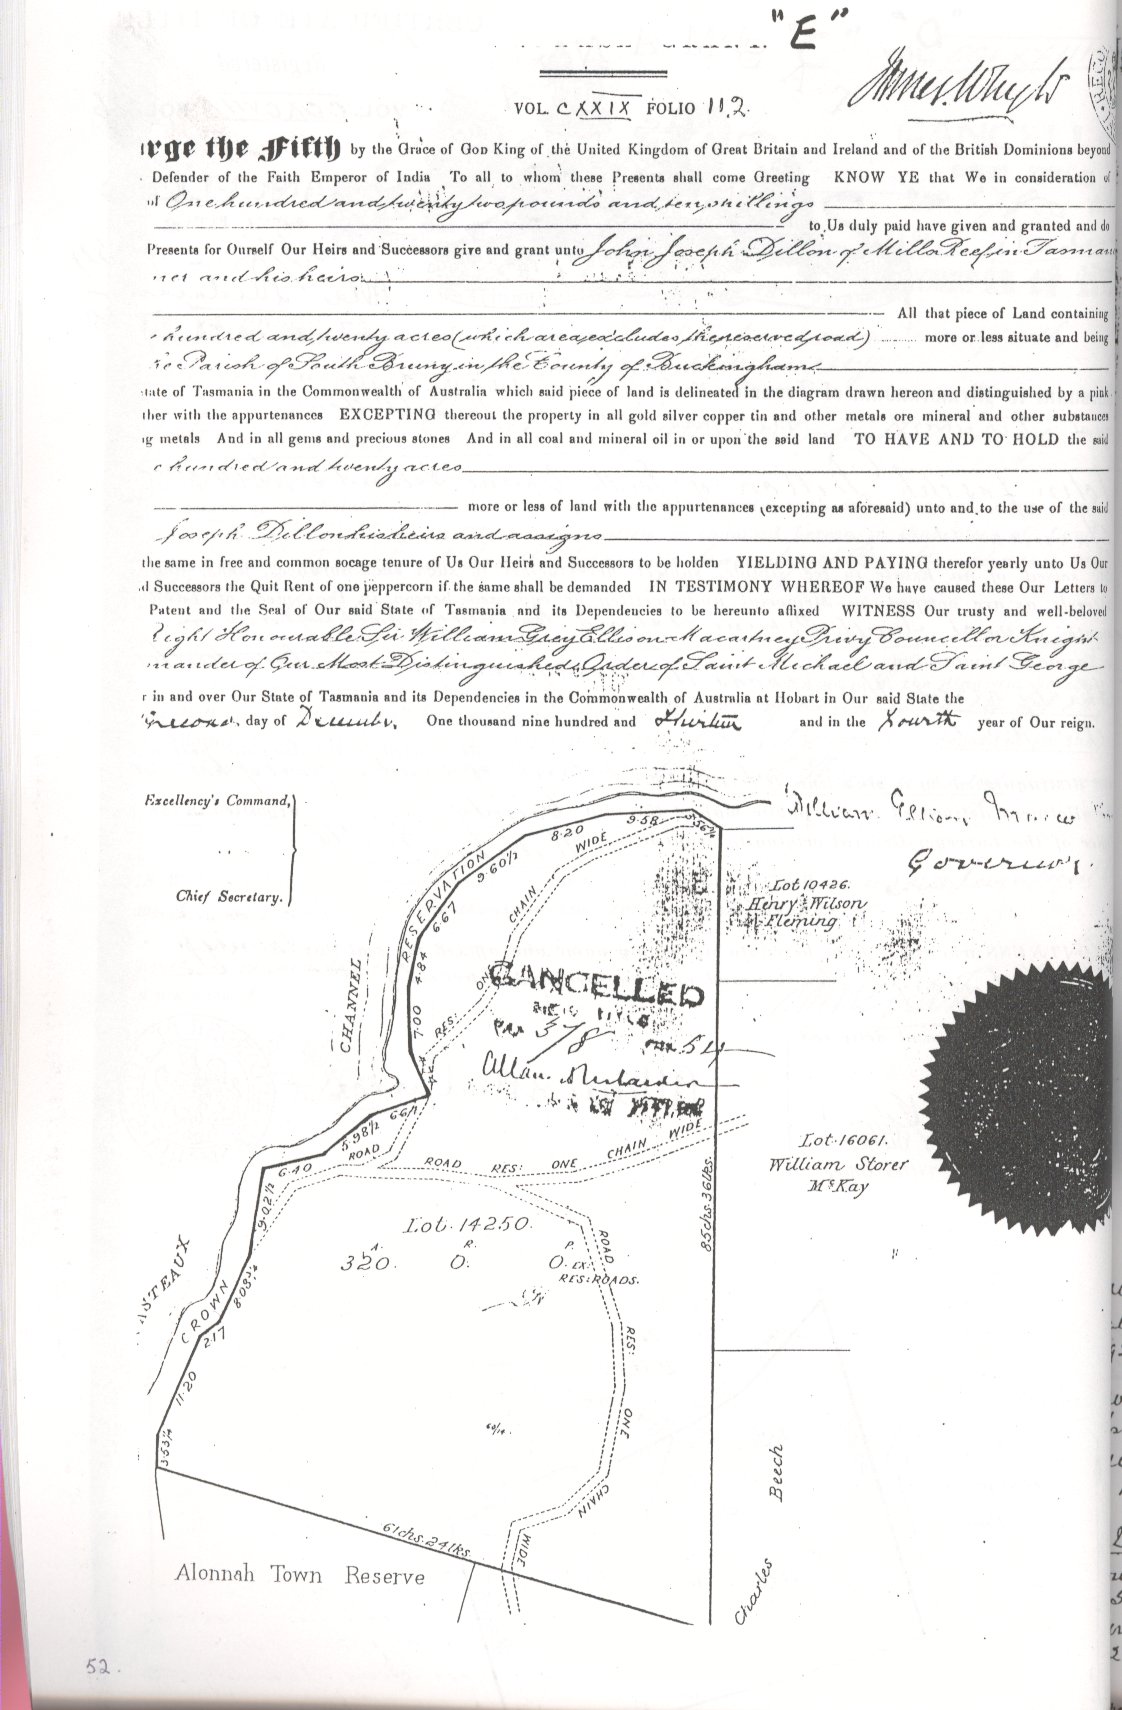 "E"
VOL. CXXIX FOLIO 112.
rge the Fifth by the Grace of God King of the United Kingdom of Great Britain and Ireland and of the British Dominions beyond
Defender of the Faith Emperor of India To all to whom these Presents shall come Greeting KNOW YE that We in consideration of
of One hundred and twenty two pounds and ten shillings
to Us duly paid have given and granted and do
Presents for Ourself Our Heirs and Successors give and grant unto John Joseph Dillon of Mills Reef in Tasman
ner and his heirs
All that piece of Land containing
hundred and twenty acres (which area excludes the reserved road) more or less situate and being
Parish of South Bruny in the County of Buckingham
tate of Tasmania in the Commonwealth of Australia which said piece of land is delineated in the diagram drawn hereon and distinguished by a pink
ther with the appurtenances EXCEPTING thereout the property in all gold silver copper tin and other metals ore mineral and other substances
g metals And in all gems and precious stones And in all coal and mineral oil in or upon the said land TO HAVE AND TO HOLD the said
hundred and twenty acres
more or less of land with the appurtenances (excepting as aforesaid) unto and to the use of the said
Joseph Dillon his heirs and assigns
the same in free and common socage tenure of Us Our Heirs and Successors to be holden YIELDING AND PAYING therefor yearly unto Us Our
d Successors the Quit Rent of one peppercorn if the same shall be demanded IN TESTIMONY WHEREOF We have caused these Our Letters to
Patent and the Seal of Our said State of Tasmania and its Dependencies to be hereunto affixed WITNESS Our trusty and well-beloved
Right Honourable Sir William Grey Ellison Macartney Privy Councillor Knight
mander of Our Most Distinguished Order of Saint Michael and Saint George
r in and over Our State of Tasmania and its Dependencies in the Commonwealth of Australia at Hobart in Our said State the
day of December One thousand nine hundred and and in the Fourth year of Our reign.
Excellency's Command,
Chief Secretary.
William Ellison
Governor.
9.58
8.20
WIDE
9.60½
RESERVATION
Lot 10426.
Henry Wilson
Fleming
CHAIN
6.67
4.84
ONE
CANCELLED
CHANNEL
7.00
RES:
378 54
Allan Richardson
5.98½
ROAD
6.40
ROAD RES: ONE CHAIN WIDE
Lot 16061.
William Storer
McKay
85chs.36lks.
9.02½
Lot 14250.
A. R. P.
320. 0. 0. EX:
RES: ROADS.
ROAD
CROWN
2.17
RES:
11.20
ONE
3.53¼
CHAIN
Beech
61chs.24lks.
WIDE
Alonnah Town Reserve
Charles
52.